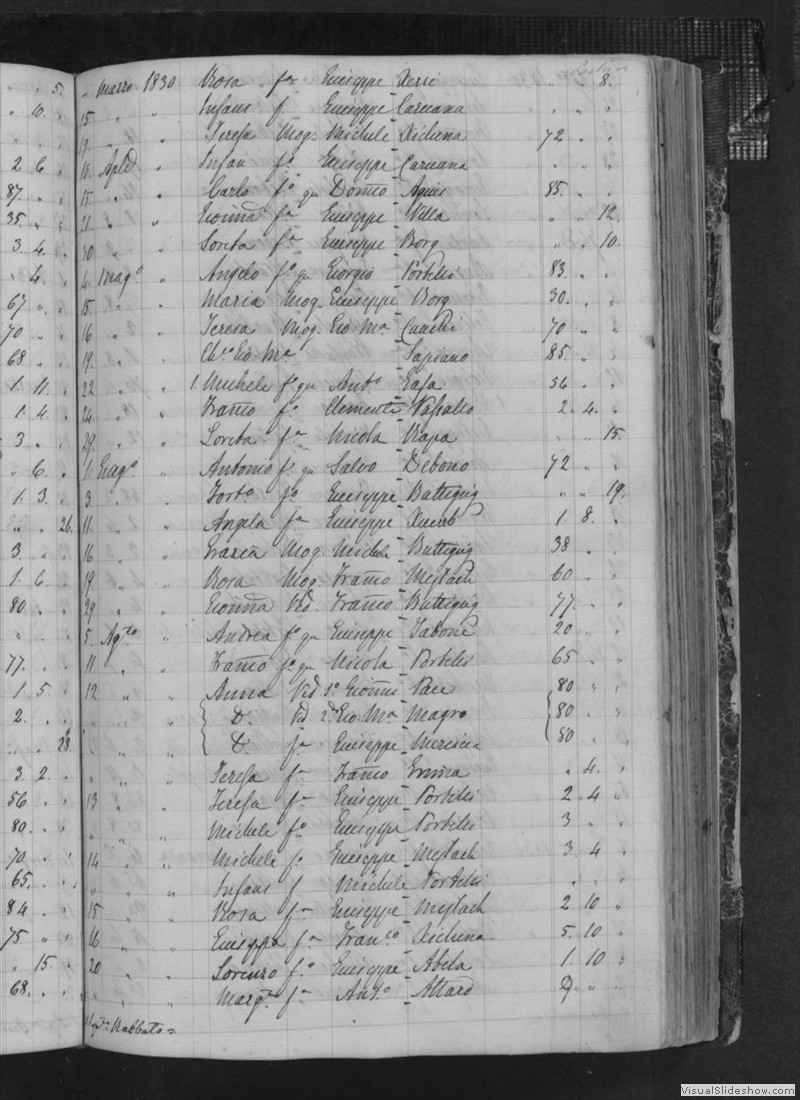 5. " Marzo 1830 Rosa fa Giuseppe Xerri " 8.
" 10. " 15 " " Infans f. Giuseppe Caruana " " "
" " " 19 " " Teresa Mog. Michele Xicluna 72 " "
2 6 " 10 Aple " Infan fo Giuseppe Caruana " " "
87. " " 15 " " Carlo fo qu Domco Agius 85. " "
35. " " 21 " " Gionna fa Giuseppe Villa " " 12.
3. 4. " 30 " Loreta fa Giuseppe Borg " " 10.
" 4. " 4 Maggo " Angelo fo qu Giorgio Portelli 83. " "
67 " " 15. " Maria Mog. Giuseppe Borg 30. " "
70 " " 16 " " Teresa Mog. Gio Ma 70 " "
68 " " 19. " " Gio. Ma Sapiano 85. " "
1. 11. " 22 " " 1. Michele fo qu Anto Gafa 56 " "
1. 4. " 24 " " Franco fo Clemente Vassallo 2. 4. "
3 " " 29. " " Loreta fa Nicola Rapa " " 15.
" 6. " 1 Giugo " Antonio fo qu Salvo Debono 72 " "
1. 3. " 3 " " Forto fo Giuseppe Buttigig " " 19.
" " 26. 11 " " Angela fa Giuseppe Xuereb 1 8. "
3. " " 16 " " Grazia Mog. Michele Buttigig 38 " "
1. 6. " 19 " " Rosa Mog. Franco Meylach 60 " "
80 " " 29 " " Gionna Ved. Franco Buttigig 77. " "
" " " 5. Agto " Andrea fo qu Giuseppe Tabone 20 " "
77. " " 11 " " Franco fo qu Nicola Portelli 65 " "
1. 5. " 12 " " Anna Ved 1o Gionni Pace 80 " "
2. " " " " " D. Vd. 2do Gio. Ma Magro 80 " "
" " 28. " " " D. fa Giuseppe 80 " "
3. 2. " " " " Teresa fa Franco " 4. "
56 " " 13 " " Teresa fa Giuseppe Portelli 2 4 "
80. " " " " " Michele fo Giuseppe Portelli 3 " "
70 " " 14 " " Michele fo Giuseppe Meylach 3. 4 "
65. " " " " " Infans f Michele Portelli " " "
84 " " 15 " " Rosa fa Giuseppe Meylach 2 10 "
75 " " 16 " " Giuseppa fa Franco Xicluna 5. 10 "
" 15. " 20 " " Lorenzo fo Giuseppe Abela 1. 10 "
68. " " " " " Margta fa Anto Attard 2 " "
Rabbato =
VisualSlideshow.com